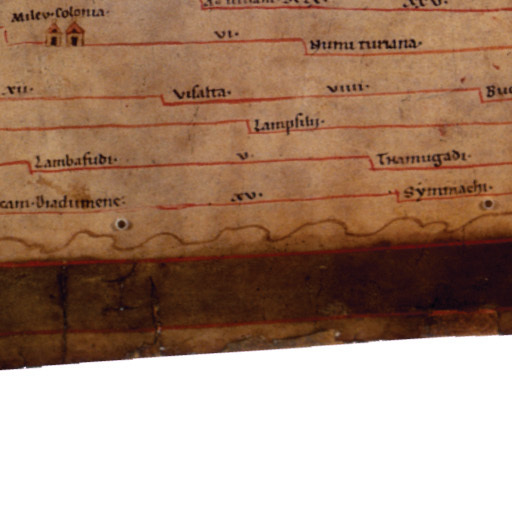 Milev·Colonia·
VI·
Numituriana·
XII·
Visalta·
VIIII·
Lampsilii·
Lambafudi·
V·
Thamugadi·
XV·
Symmachi·